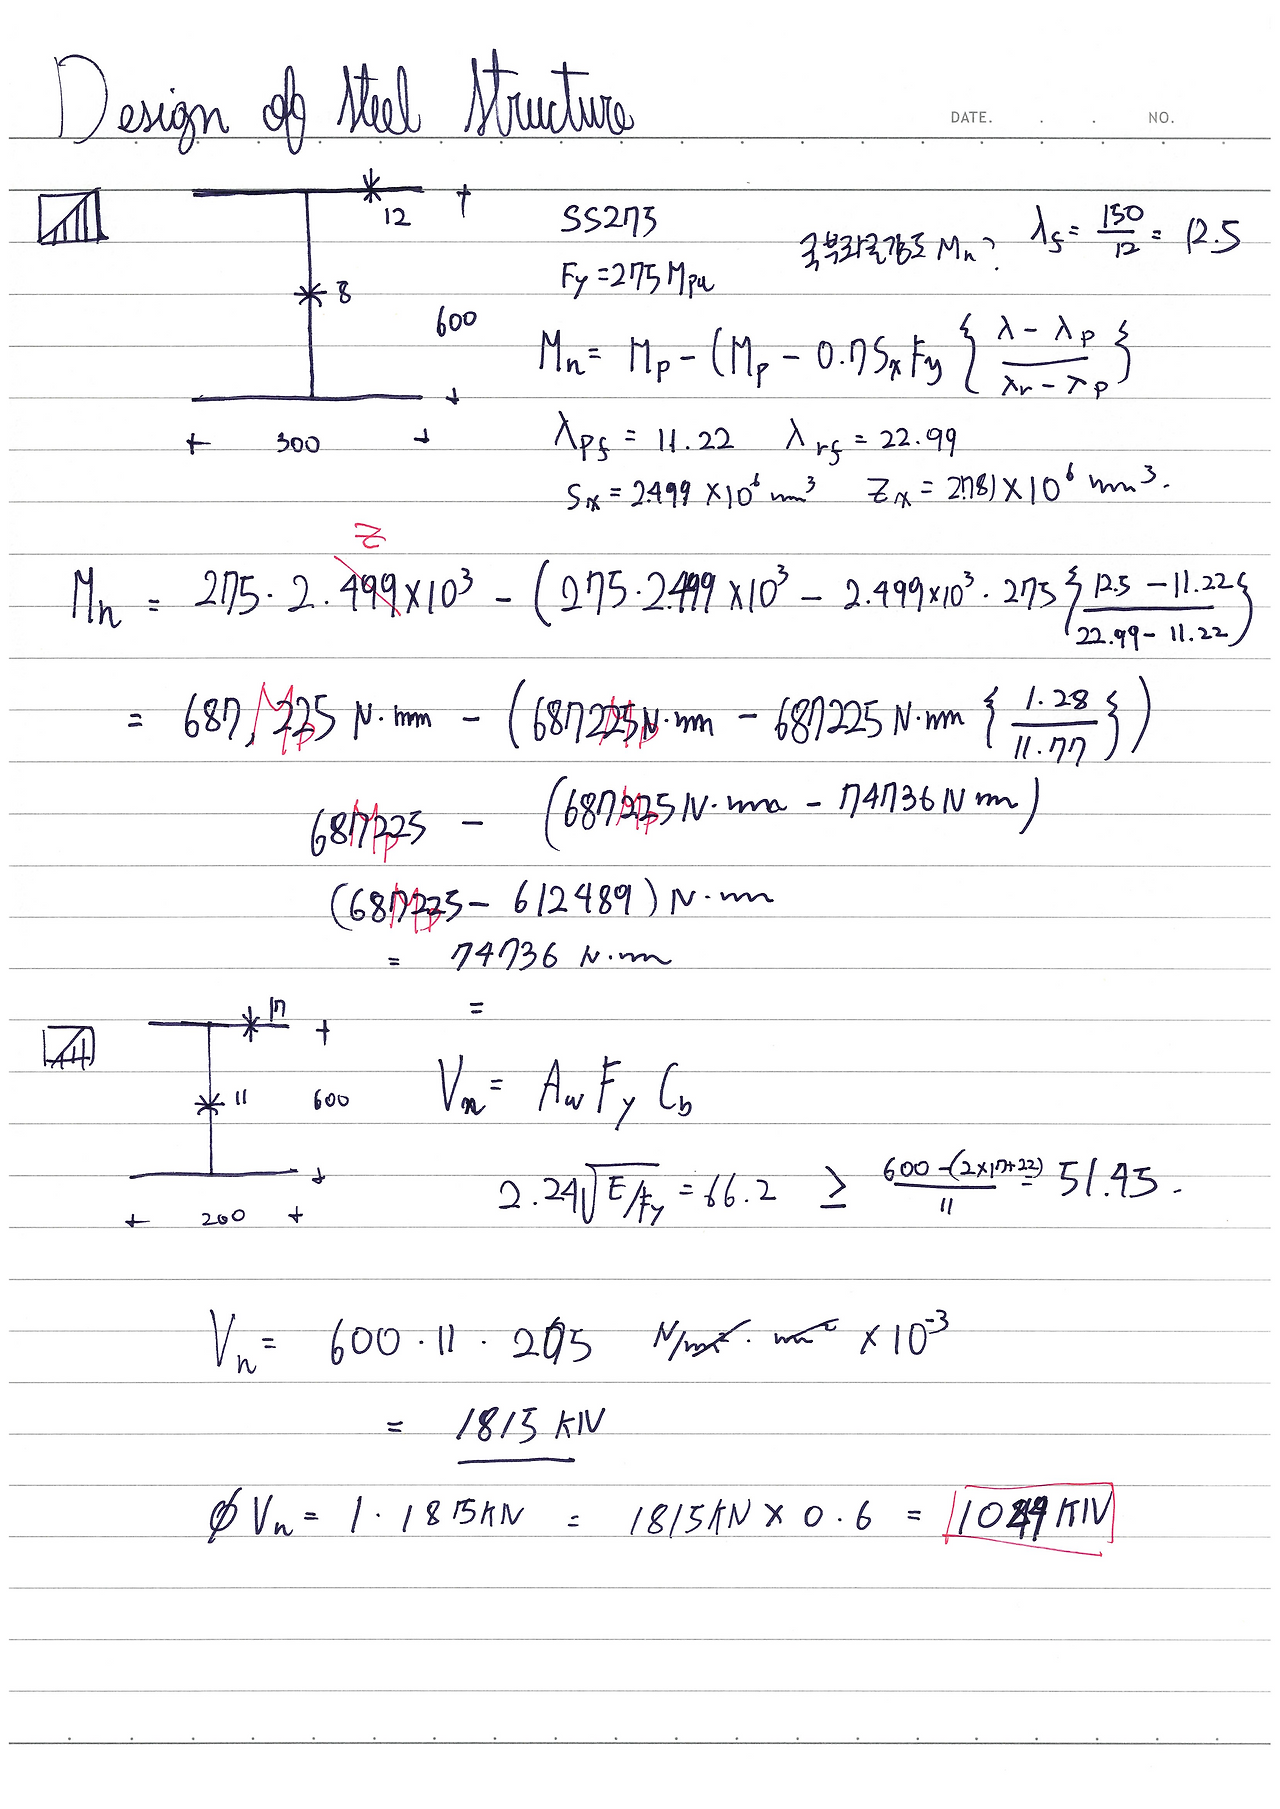 Design of Steel Structure
DATE. . . NO.
12
8
600
300
SS275
Fy = 275 Mpa
국부좌굴강도 Mn?
λf = 150/12 = 12.5
Mn = Mp - (Mp - 0.7 Sx Fy { λ - λp / λr - λp }
λpf = 11.22 λrf = 22.99
Sx = 2.499 × 10⁶ mm³ Zx = 2.781 × 10⁶ mm³.
Z
Mn = 275 · 2.499 × 10³ - (275 · 2.499 × 10³ - 2.499 × 10³ · 275 { 12.5 - 11.22 / 22.99 - 11.22 }
= 687,225 N·mm - (687225 N·mm - 687225 N·mm { 1.28 / 11.77 })
Mp Mp
687225 - (687225 N·mm - 74736 N mm)
Mp Mp
(687225 - 612489) N·mm
Mp
= 74736 N·mm
=
17
11
600
200
Vn = Aw Fy Cb
2.24 √E/Fy = 66.2 ≥ 600 - (2×17+22) / 11 = 51.45.
Vn = 600 · 11 · 275 N/mm² · mm² × 10⁻³
= 1815 KN
φVn = 1 · 1815KN = 1815KN × 0.6 = KN